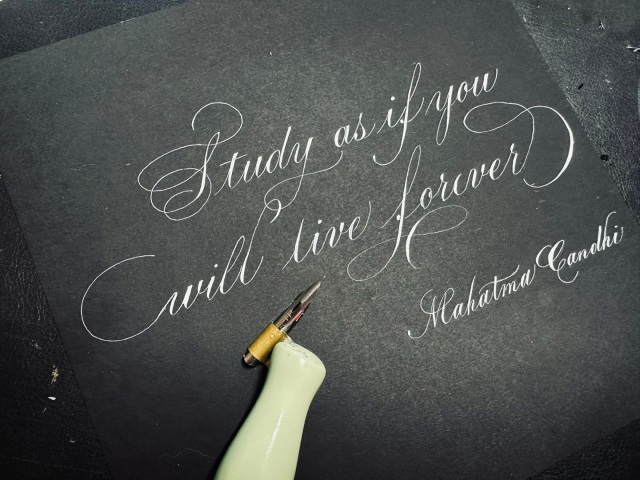 Study as if you
will live forever
Mahatma Gandhi